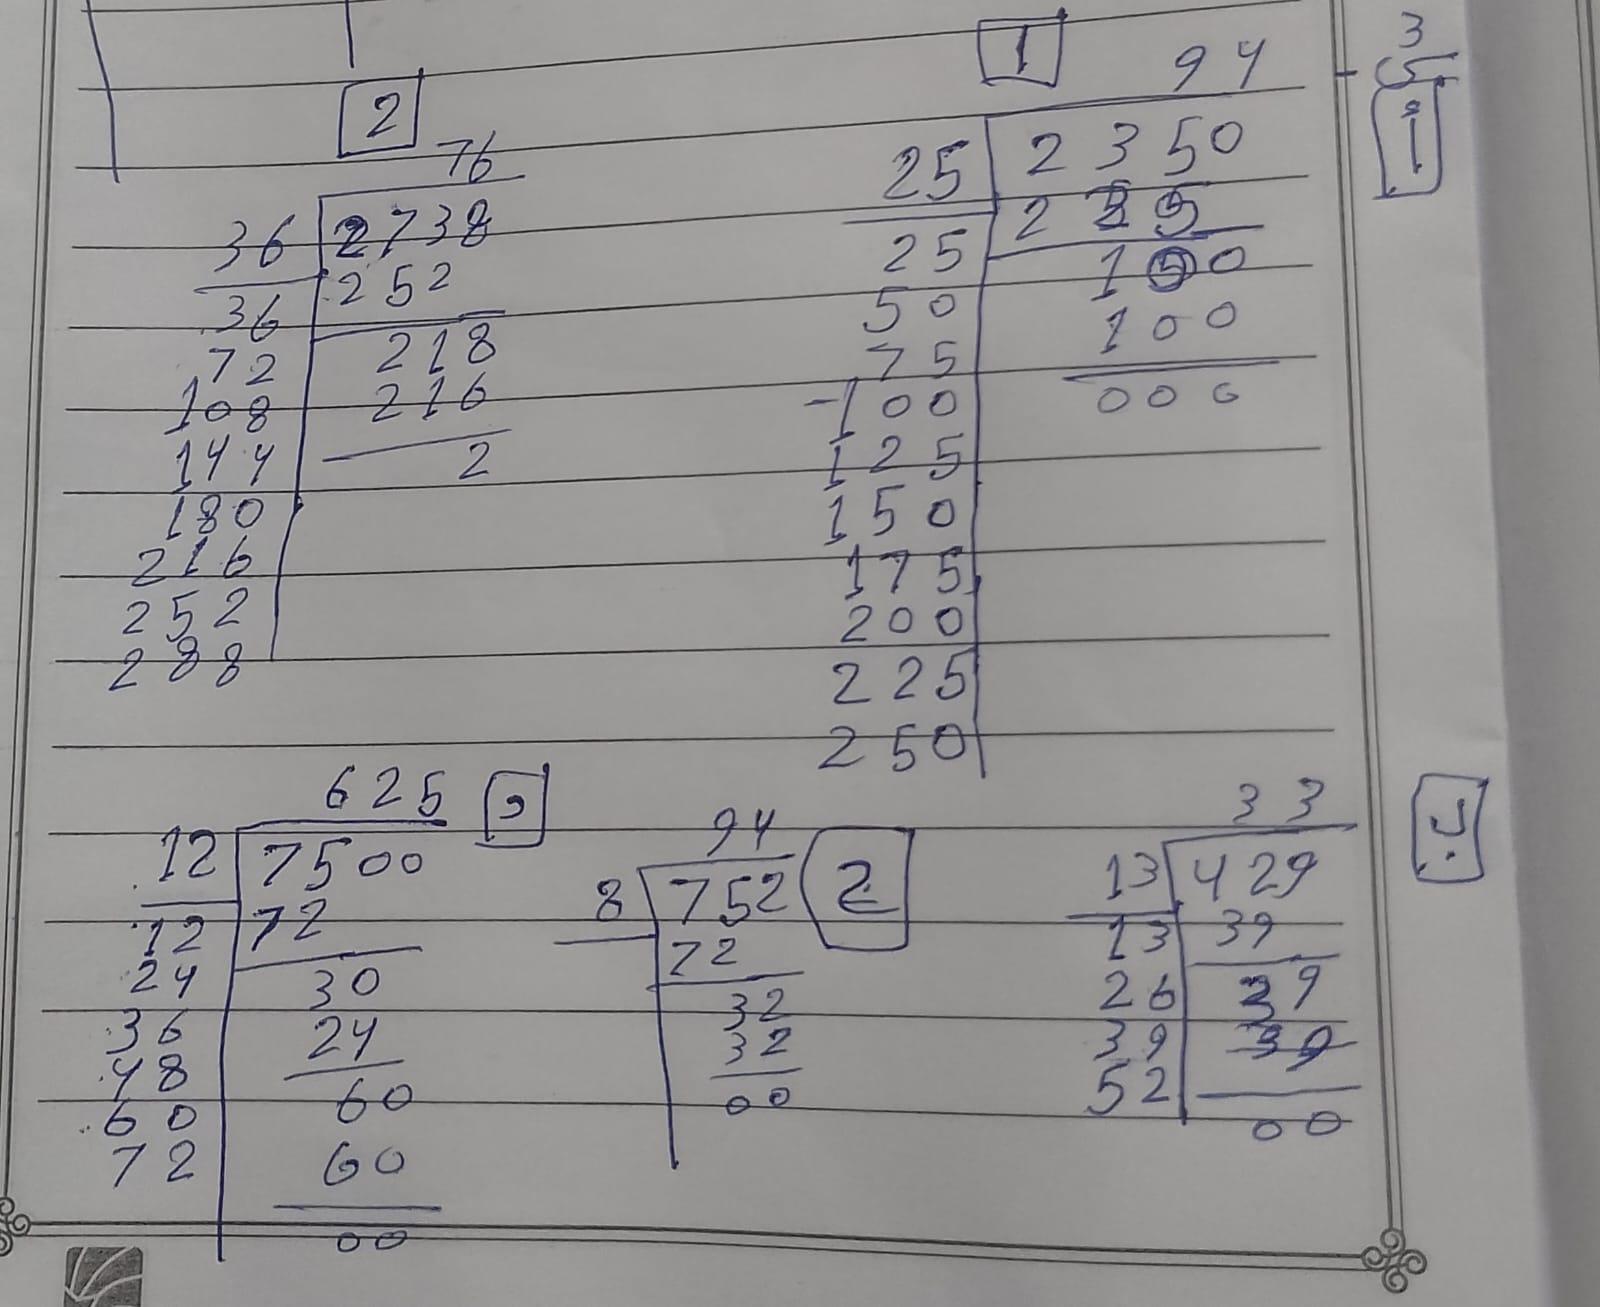 3
س
أ
1
94
25 2350
225
100
100
000
25
50
75
100
125
150
175
200
225
250
2
76
36 2738
252
218
216
2
36
72
108
144
180
216
252
288
ب
33
13 429
39
39
39
00
13
26
39
52
ج
94
8 752
72
32
32
00
د
625
12 7500
72
30
24
60
60
00
12
24
36
48
60
72